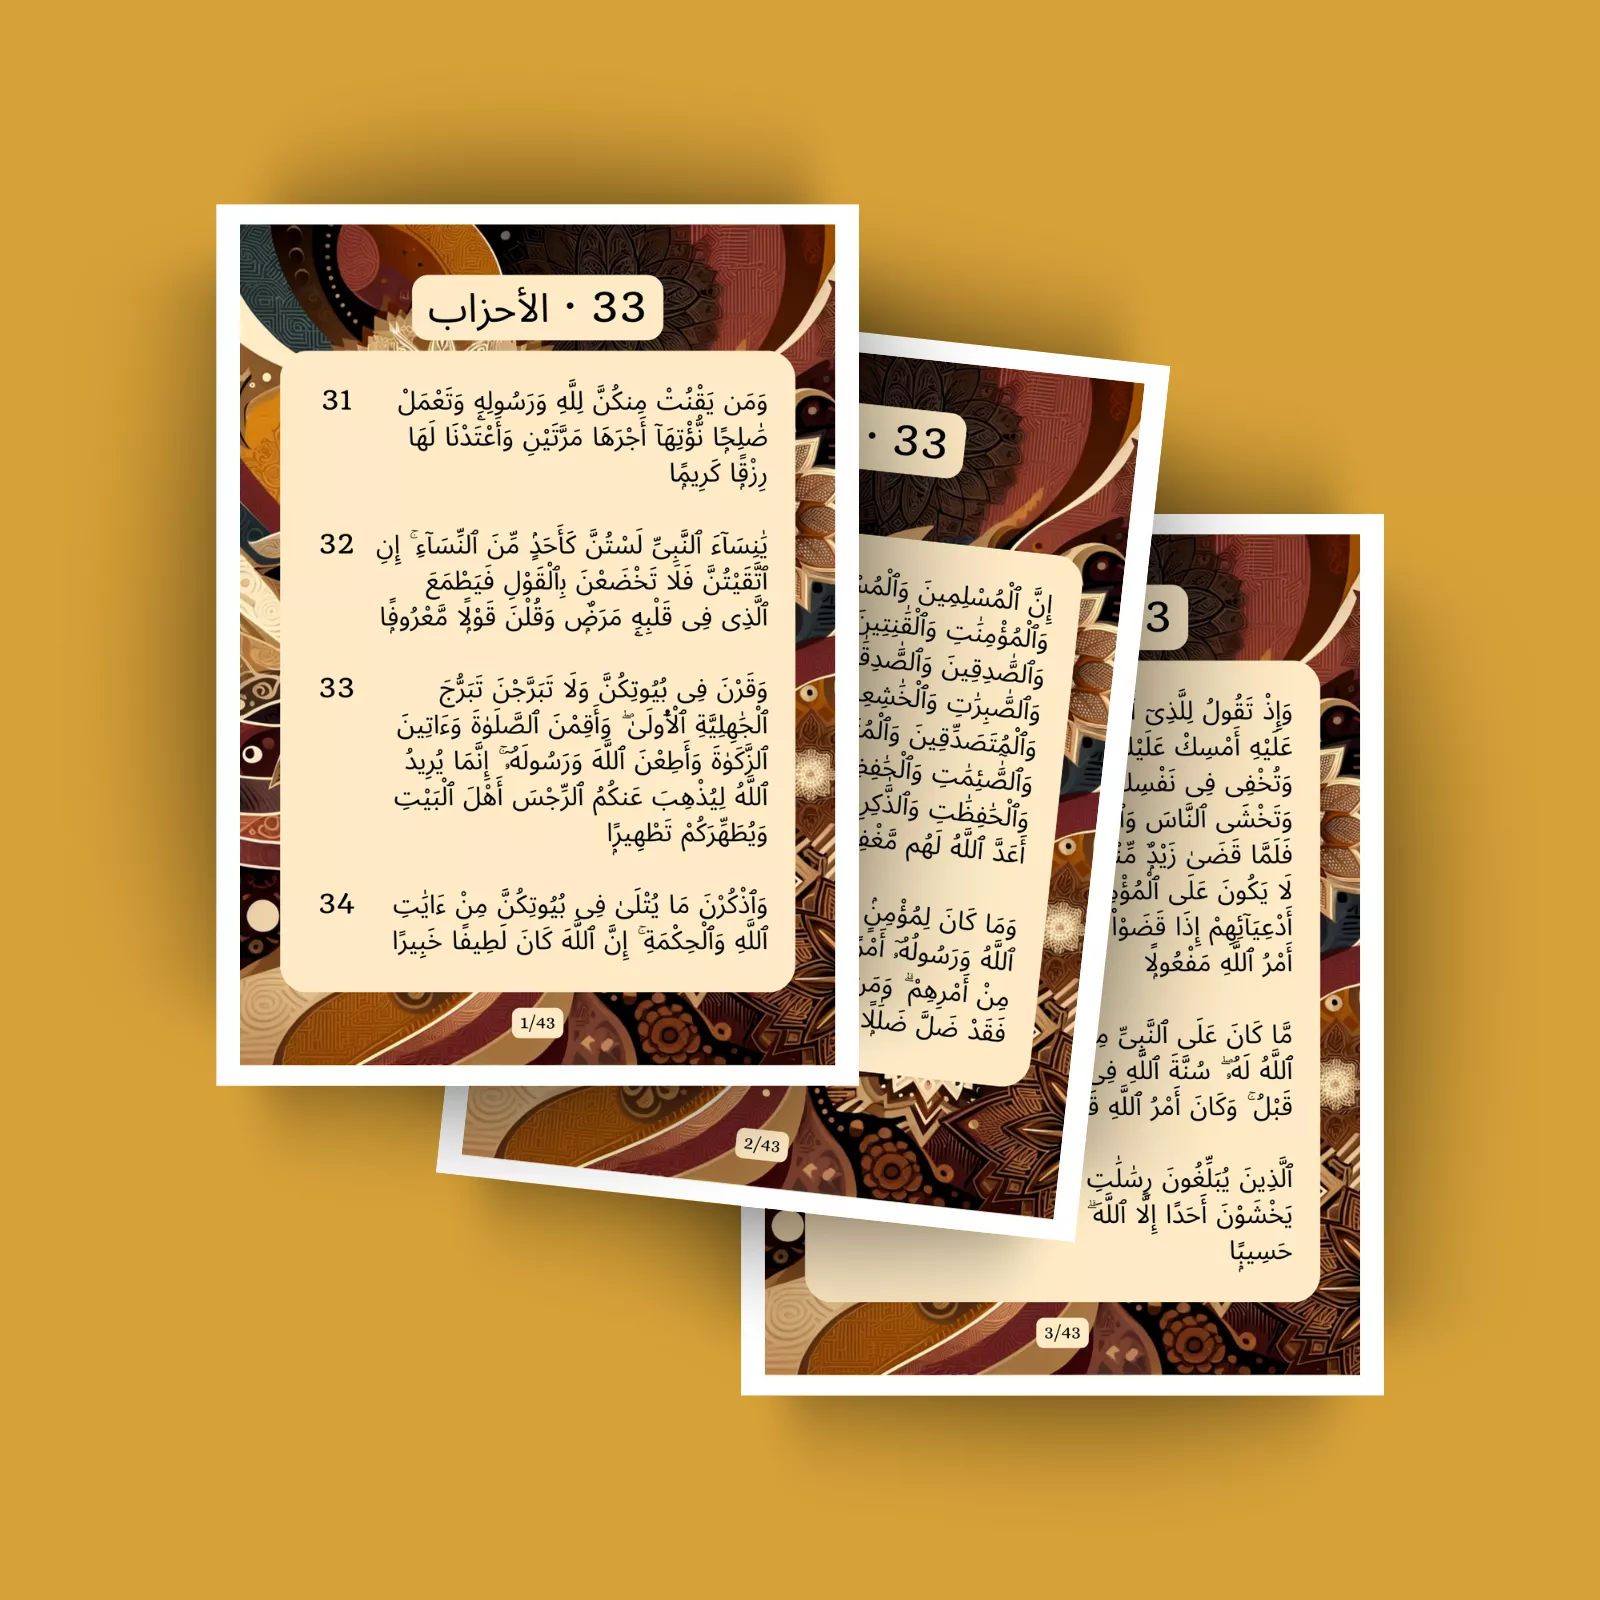 33 · الأحزاب
31 وَمَن يَقْنُتْ مِنكُنَّ لِلَّهِ وَرَسُولِهِۦ وَتَعْمَلْ
صَٰلِحًۭا نُّؤْتِهَآ أَجْرَهَا مَرَّتَيْنِ وَأَعْتَدْنَا لَهَا
رِزْقًۭا كَرِيمًۭا
32 يَٰنِسَآءَ ٱلنَّبِىِّ لَسْتُنَّ كَأَحَدٍۢ مِّنَ ٱلنِّسَآءِ ۚ إِنِ
ٱتَّقَيْتُنَّ فَلَا تَخْضَعْنَ بِٱلْقَوْلِ فَيَطْمَعَ
ٱلَّذِى فِى قَلْبِهِۦ مَرَضٌۭ وَقُلْنَ قَوْلًۭا مَّعْرُوفًۭا
33 وَقَرْنَ فِى بُيُوتِكُنَّ وَلَا تَبَرَّجْنَ تَبَرُّجَ
ٱلْجَٰهِلِيَّةِ ٱلْأُولَىٰ ۖ وَأَقِمْنَ ٱلصَّلَوٰةَ وَءَاتِينَ
ٱلزَّكَوٰةَ وَأَطِعْنَ ٱللَّهَ وَرَسُولَهُۥٓ ۚ إِنَّمَا يُرِيدُ
ٱللَّهُ لِيُذْهِبَ عَنكُمُ ٱلرِّجْسَ أَهْلَ ٱلْبَيْتِ
وَيُطَهِّرَكُمْ تَطْهِيرًۭا
34 وَٱذْكُرْنَ مَا يُتْلَىٰ فِى بُيُوتِكُنَّ مِنْ ءَايَٰتِ
ٱللَّهِ وَٱلْحِكْمَةِ ۚ إِنَّ ٱللَّهَ كَانَ لَطِيفًا خَبِيرًا
1/43
33 ·
إِنَّ ٱلْمُسْلِمِينَ
وَٱلْمُؤْمِنَٰتِ وَٱلْقَٰنِتِينَ
وَٱلصَّٰدِقِينَ
وَٱلصَّٰبِرَٰتِ
وَٱلْمُتَصَدِّقِينَ
وَٱلصَّٰٓئِمَٰتِ
وَٱلْحَٰفِظَٰتِ
أَعَدَّ ٱللَّهُ لَهُم
وَمَا كَانَ لِمُؤْمِنٍۢ
ٱللَّهُ وَرَسُولُهُۥٓ
مِنْ أَمْرِهِمْ ۗ
فَقَدْ ضَلَّ ضَلَٰلًۭا
2/43
3
وَإِذْ تَقُولُ لِلَّذِىٓ
عَلَيْهِ أَمْسِكْ
وَتُخْفِى فِى
وَتَخْشَى ٱلنَّاسَ
فَلَمَّا قَضَىٰ زَيْدٌۭ
لَا يَكُونَ عَلَى
أَدْعِيَآئِهِمْ إِذَا قَضَوْا۟
أَمْرُ ٱللَّهِ مَفْعُولًۭا
مَّا كَانَ عَلَى ٱلنَّبِىِّ
ٱللَّهُ لَهُۥ ۖ سُنَّةَ ٱللَّهِ فِى
قَبْلُ ۚ وَكَانَ أَمْرُ ٱللَّهِ
ٱلَّذِينَ يُبَلِّغُونَ رِسَٰلَٰتِ
يَخْشَوْنَ أَحَدًا إِلَّا ٱللَّهَ ۗ
حَسِيبًۭا
3/43